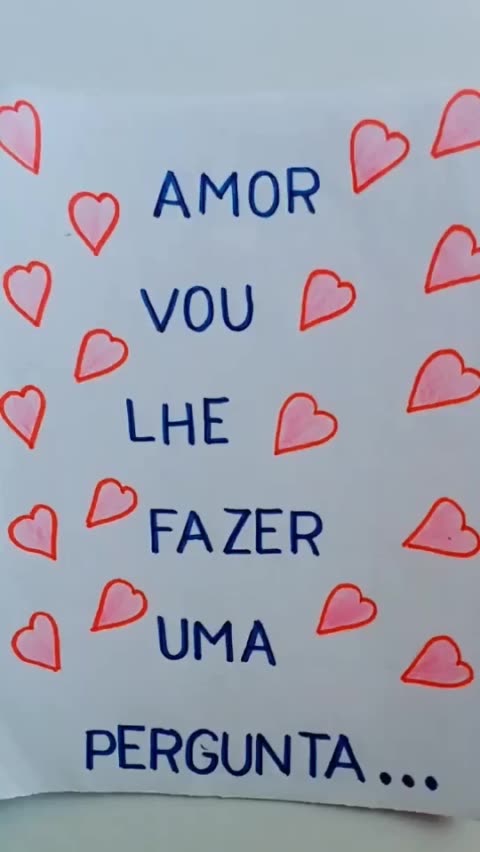 AMOR
VOU
LHE
FAZER
UMA
PERGUNTA...